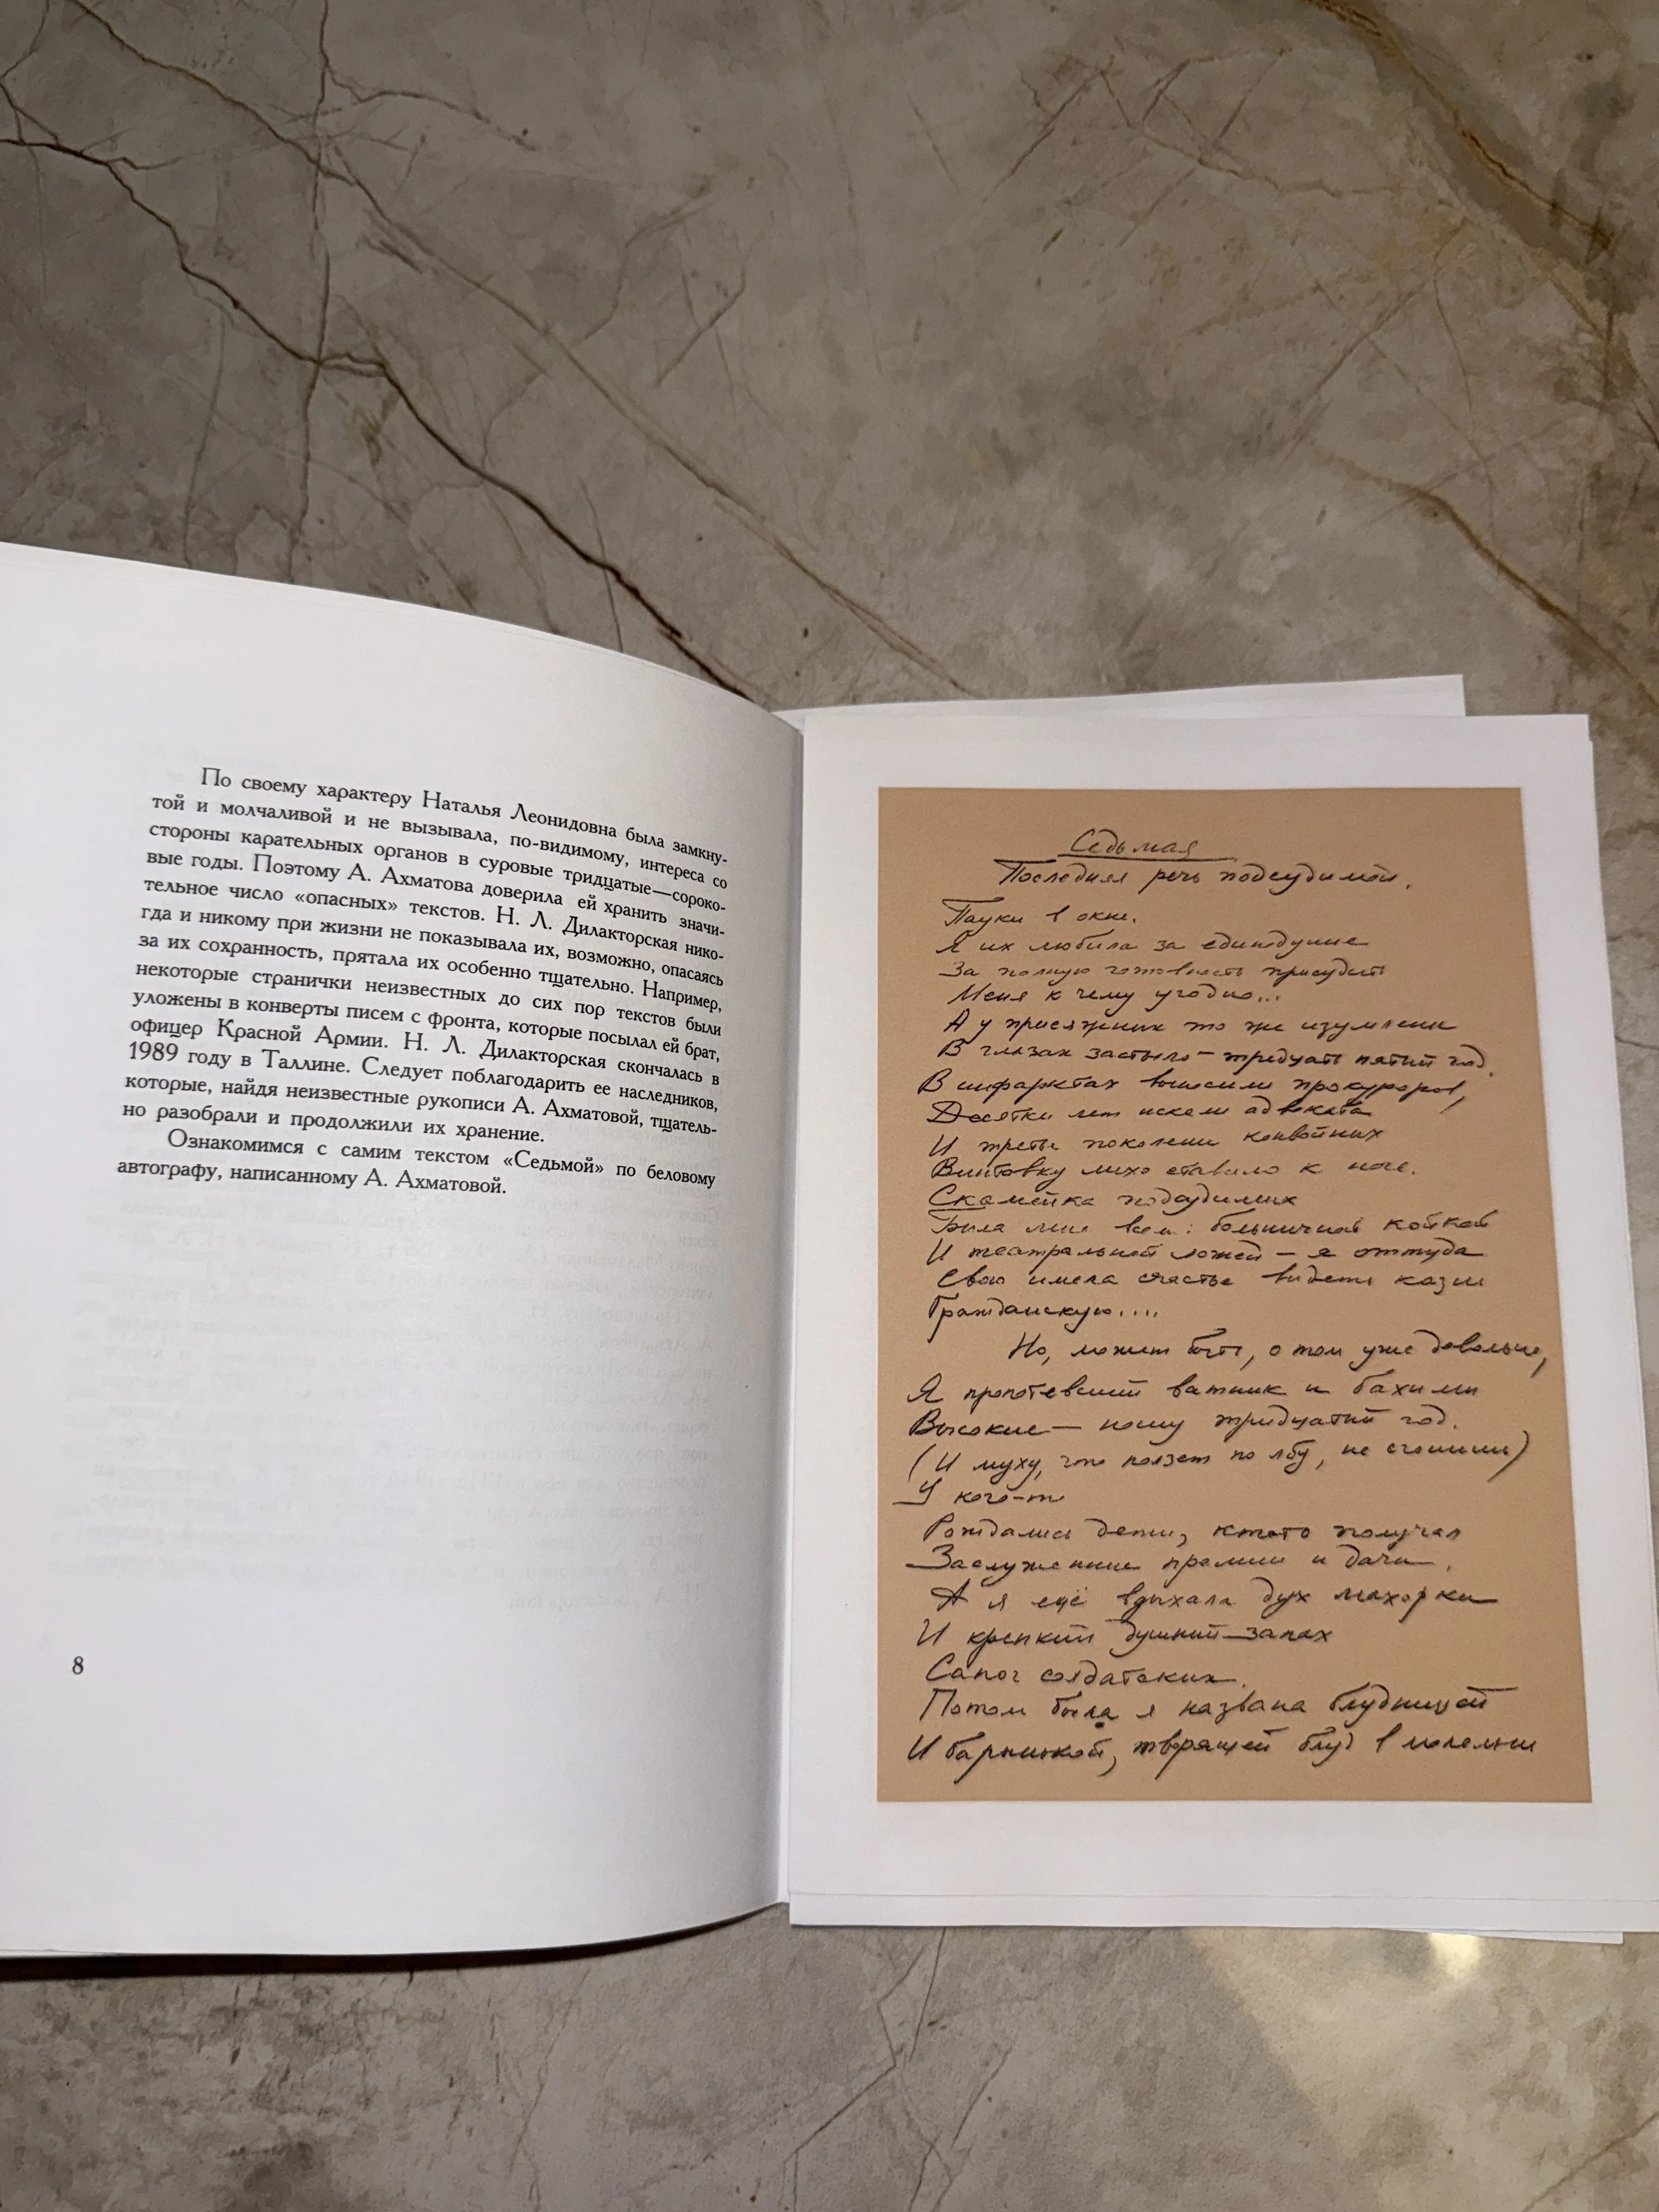 По своему характеру Наталья Леонидовна была замкну-
той и молчаливой и не вызывала, по-видимому, интереса со
стороны карательных органов в суровые тридцатые—сороко-
вые годы. Поэтому А. Ахматова доверила ей хранить значи-
тельное число «опасных» текстов. Н. Л. Дилакторская нико-
гда и никому при жизни не показывала их, возможно, опасаясь
за их сохранность, прятала их особенно тщательно. Например,
некоторые странички неизвестных до сих пор текстов были
уложены в конверты писем с фронта, которые посылал ей брат,
офицер Красной Армии. Н. Л. Дилакторская скончалась в
1989 году в Таллине. Следует поблагодарить ее наследников,
которые, найдя неизвестные рукописи А. Ахматовой, тщатель-
но разобрали и продолжили их хранение.
Ознакомимся с самим текстом «Седьмой» по беловому
автографу, написанному А. Ахматовой.
8
Седьмая
Последняя речь подсудимой.
Пауки в окне.
Я их любила за единодушие
За полную готовность присудить
Меня к чему угодно...
А у присяжных то же изумленье
В глазах застыло — тридцать пятый год.
В инфарктах выносили прокуроров,
Десятки лет искали адвоката
И третье поколенье конвойных
Винтовку лихо ставило к ноге.
Скамейка подсудимых
Была мне всем: больничной койкой
И театральной ложей — я оттуда
Свою имела счастье видеть казнь
Гражданскую....
Но, может быть, о том уже довольно,
Я пропотевший ватник и бахилы
Высокие — ношу тридцатый год.
(И муху, что ползет по лбу, не сгонишь)
У кого-то
Рождались дети, кто-то получал
Заслуженные премии и дачи.
А я ещё вдыхала дух махорки
И крепкий душный запах
Сапог солдатских.
Потом была я названа блудницей
И барынькой, творящей блуд в молельне